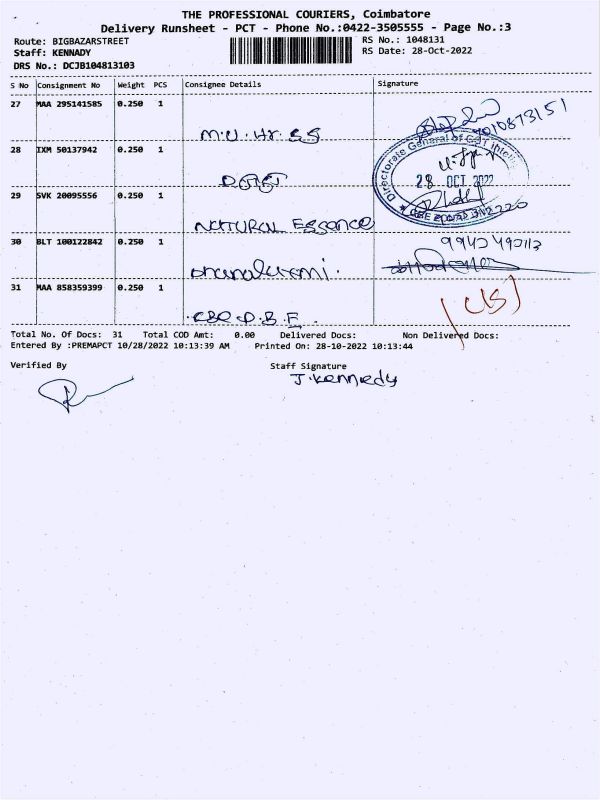 THE PROFESSIONAL COURIERS, Coimbatore
Delivery Runsheet - PCT - Phone No.:0422-3505555 - Page No.:3
Route: BIGBAZARSTREET RS No.: 1048131
Staff: KENNADY RS Date: 28-Oct-2022
DRS No.: DCJB104813103
S No Consignment No Weight PCS Consignee Details Signature
27 MAA 295141585 0.250 1
M.U. Hr. SS
28 IXM 50137942 0.250 1
Directorate General of GST Intelli
28 OCT 2022
29 SVK 20095556 0.250 1
NATURAL Essence
30 BLT 100122842 0.250 1
Dhanaluxmi.
31 MAA 858359399 0.250 1
Total No. Of Docs: 31 Total COD Amt: 0.00 Delivered Docs: Non Delivered Docs:
Entered By :PREMAPCT 10/28/2022 10:13:39 AM Printed On: 28-10-2022 10:13:44
Verified By Staff Signature
J. Kennedy